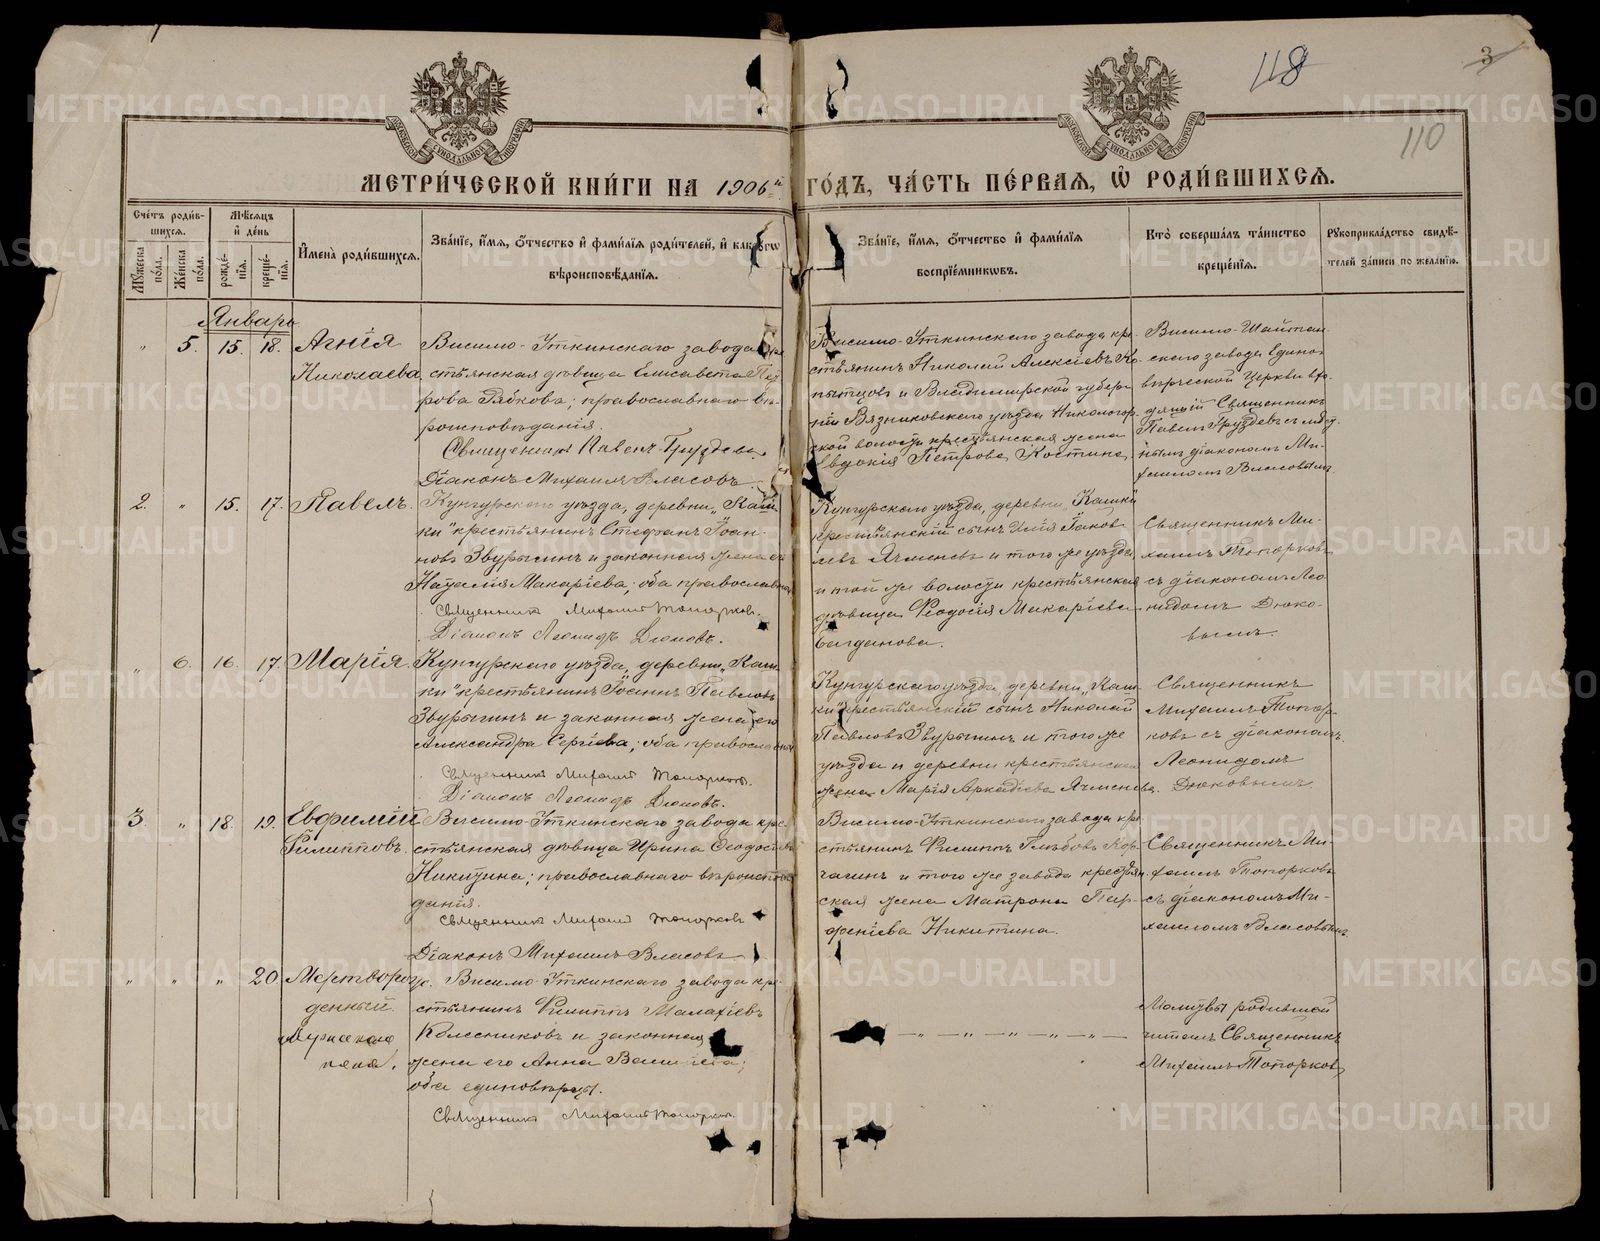 118
3
110
МОСКОВСКОЙ СѴНОДАЛЬНОЙ ТИПОГРАФІИ
МОСКОВСКОЙ СѴНОДАЛЬНОЙ ТИПОГРАФІИ
МЕТРИ́ЧЕСКОЙ КНИ́ГИ НА 1906й ГО́ДЪ, ЧА́СТЬ ПЕ́РВАѦ, Ѽ РОДИ́ВШИХСѦ.
Сче́тъ роди́в-
шихсѧ.
Мꙋ́жеска по́ла.
Же́нска по́ла.
Мѣ́сѧцъ
и҆ де́нь
рожде́-
нїѧ.
креще́-
нїѧ.
И҆мена̀ роди́вшихсѧ.
Зва́нїе, и҆́мѧ, ѻ҆́тчество и҆ фами́лїѧ роди́телей, и҆ како́гѡ
вѣроисповѣ́данїѧ.
Зва́нїе, и҆́мѧ, ѻ҆́тчество и҆ фами́лїѧ
воспрїе́мникѡвъ.
Кто̀ соверша́лъ та́инство
креще́нїѧ.
Рꙋкоприкла́дство свидѣ́-
телей за́писи по жела́нїю.
Январь
" 5. 15. 18. Агнія
Николаева
Висимо-Уткинскаго завода кре-
стьянская дѣвица Елисавета Пет-
рова Рябкова; православнаго вѣ-
роисповѣданія.
Священникъ Павелъ Груздевъ.
Діаконъ Михаилъ Власовъ.
Висимо-Уткинскаго завода кре-
стьянинъ Николай Алексіевъ Ко-
пытцовъ и Владимирской губер-
ніи Вязниковскаго уѣзда Никологор-
ской волости крестьянская жена
Евдокія Петрова Костина.
Висимо-Шайтан-
скаго завода Едино-
вѣрческой Церкви
Священникъ
Павелъ Груздевъ съ
діакономъ Ми-
хаиломъ Власовымъ
2. " 15. 17. Павелъ.
Кунгурскаго уѣзда, деревни „Каш-
ки" крестьянинъ Стефанъ Іоан-
новъ Звурыгинъ и законная жена его
Наталія Макаріева; оба православные
Священникъ Михаилъ Топорковъ.
Діаконъ Леонидъ Дюковъ.
Кунгурскаго уѣзда, деревни „Кашки"
крестьянскій сынъ Илія Іаков-
левъ Ячменевъ и того же уѣзда
и той же волости крестьянская
дѣвица Ѳеодосія Макаріева
Богданова.
Священникъ Ми-
хаилъ Топорковъ
съ діакономъ Лео-
нидомъ Дюко-
вымъ.
" 6. 16. 17. Марія.
Кунгурскаго уѣзда, деревни „Каш-
ки" крестьянинъ Іоаннъ Павловъ
Звурыгинъ и законная жена его
Александра Сергіева; оба православные
Священникъ Михаилъ Топорковъ.
Діаконъ Леонидъ Дюковъ.
Кунгурскаго уѣзда, деревни „Каш-
ки" крестьянскій сынъ Николай
Павловъ Звурыгинъ и того же
уѣзда и деревни крестьянская
жена Марія Аркадіева Ячменева.
Священникъ
Михаилъ Топор-
ковъ съ діакономъ
Леонидомъ
Дюковымъ
3. " 18. 19. Евфимій
Филипповъ.
Висимо-Уткинскаго завода кре-
стьянская дѣвица Ирина Ѳеодосіева
Никитина; православнаго вѣроисповѣ-
данія.
Священникъ Михаилъ Топорковъ
Діаконъ Михаилъ Власовъ
Висимо-Уткинскаго завода кре-
стьянинъ Филиппъ Глѣбовъ Кор-
чагинъ и того же завода крестьян-
ская жена Матрона Пар-
феніева Никитина.
Священникъ Ми-
хаилъ Топорковъ
съ діакономъ Ми-
хаиломъ Власовымъ
" " " 20. Мертворож-
денный
мужескаго
пола.
Висимо-Уткинскаго завода кре-
стьянинъ Филиппъ Малахіевъ
Колесниковъ и законная
жена его Анна Василіева;
оба единовѣрцы.
Священникъ Михаилъ Топорковъ.
— " — " — " — " — " —
Молитвы родившей
читалъ Священникъ
Михаилъ Топорковъ
METRIKI.GASO-URAL.RU